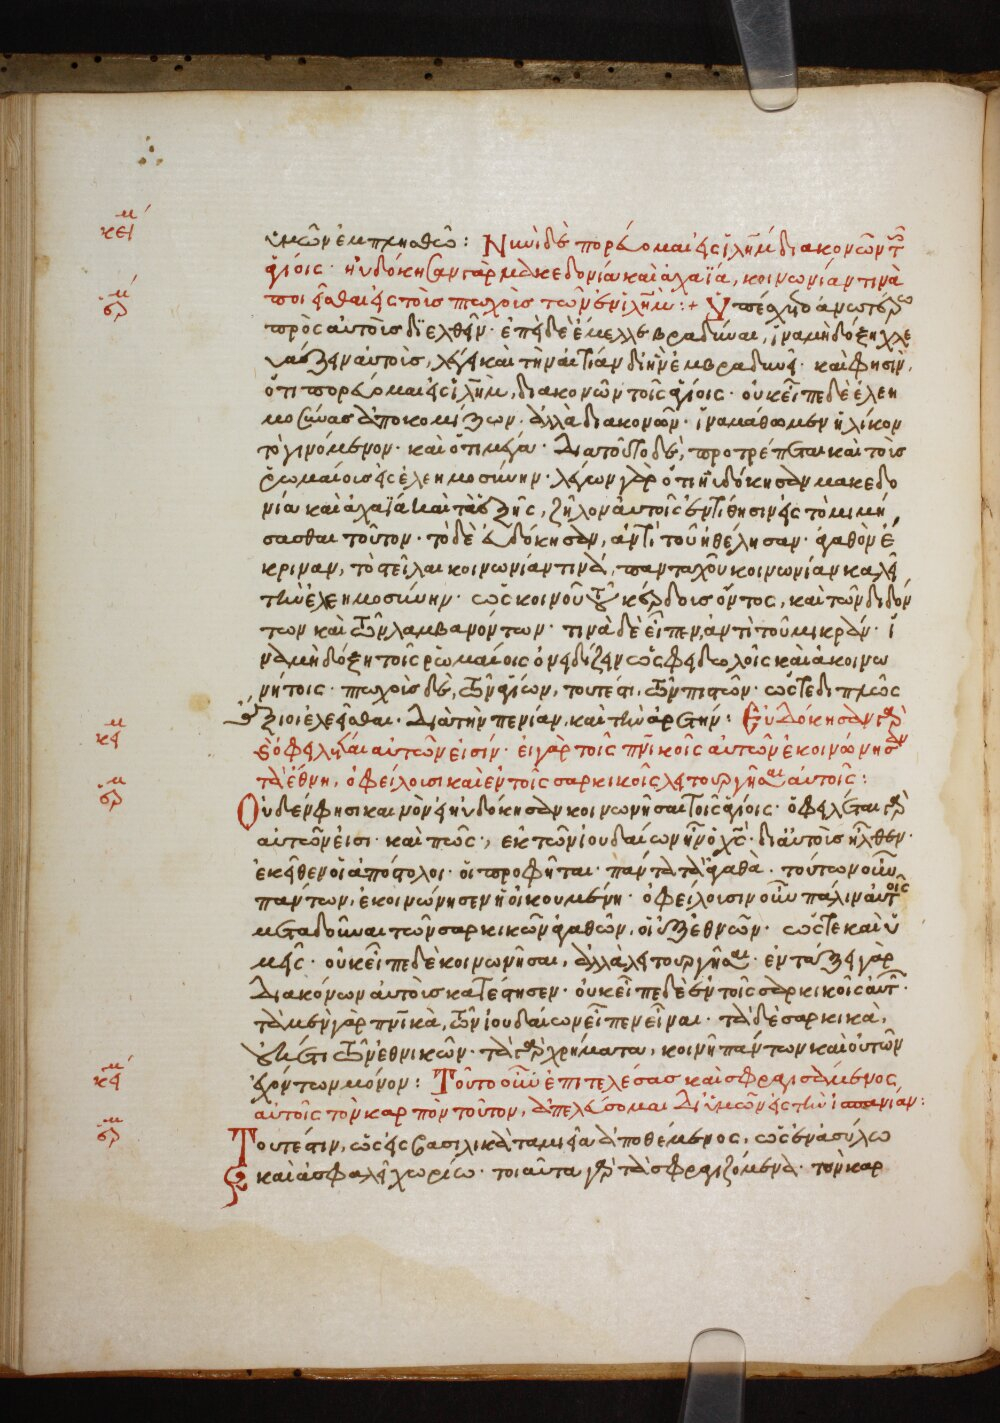 κεί μ
ἑρ μ
ὑμῶν ἐμπλησθῶ: Νυνὶ δὲ πορεύομαι εἰς ἱλῆμ διακονῶν τοῖς
ἁγίοις· ηὐδόκησαν γὰρ μακεδονία καὶ ἀχαΐα, κοινωνίαν τινὰ
ποιήσασθαι εἰς τοὺς πτωχοὺς τῶν ἐν ἱλῆμ:+ Ὑπέσχετο ἀνωτέρω
πρὸς αὐτοὺς διελθεῖν· ἐπεὶ δὲ ἔμελλε βραδῦναι, ἵνα μὴ δόξῃ χλευ
άζειν αὐτοὺς, λέγει καὶ τὴν αἰτίαν δι' ἣν ἐμβραδύνει· καὶ φησὶν,
ὅτι πορεύομαι εἰς ἱλῆμ, διακονῶν τοῖς ἁγίοις· οὐκ εἶπε δὲ ἐλεη
μοσύνας ἀποκομίζων· ἀλλὰ διακονῶν· ἵνα μάθωμεν ἡλίκον
τὸ γινόμενον· καὶ ὅτι μέγα· Διὰ τοῦτο δὲ, προτρέπεται καὶ τοὺς
ῥωμαίους εἰς ἐλεημοσύνην· λέγων γὰρ ὅτι ηὐδόκησαν μακεδο
νία καὶ ἀχαΐα καὶ τὰ ἑξῆς, ζῆλον αὐτοῖς ἐντίθησιν εἰς τὸ μιμή
σασθαι τοῦτον· τὸ δὲ εὐδόκησαν, ἀντὶ τοῦ ἠθέλησαν· ἀγαθὸν ἔ
κριναν, τὸ στεῖλαι κοινωνίαν τινὰ, πανταχοῦ κοινωνίαν καλεῖ
τὴν ἐλεημοσύνην· ὡς κοινοῦ τοῦ κέρδους ὄντος, καὶ τῶν διδόν
των καὶ τῶν λαμβανόντων· τινὰ δὲ εἶπεν, ἀντὶ τοῦ μικράν· ἵ
να μὴ δόξῃ τοῖς ῥωμαίοις ὀνειδίζειν ὡς φειδωλοῖς καὶ ἀκοινω
νήτοις· πτωχοὺς δὲ, τῶν ἁγίων, τουτέστι, τῶν πιστῶν· ὥστε διπλῶς
ἄξιοι ἐλεεῖσθαι· διὰ τὴν πενίαν, καὶ τὴν ἀρετήν: Εὐδόκησαν γὰρ
κεί μ
καὶ ὀφειλέται αὐτῶν εἰσίν· εἰ γὰρ τοῖς πνικοῖς αὐτῶν ἐκοινώνησαν
τὰ ἔθνη, ὀφείλουσι καὶ ἐν τοῖς σαρκικοῖς λειτουργῆσαι αὐτοῖς:
ἑρ μ
Οὐδέν φησι καινὸν εἰ ηὐδόκησαν κοινωνῆσαι τοῖς ἁγίοις· ὀφειλέται γὰρ
αὐτῶν εἰσι· καὶ πῶς; ἐκ τῶν ἰουδαίων ἦν ὁ χς· δι' αὐτοὺς ἦλθεν·
ἐκεῖθεν οἱ ἀπόστολοι· οἱ προφῆται· πάντα τὰ ἀγαθὰ· τούτων οὖν
πάντων, ἐκοινώνησεν ἡ οἰκουμένη· ὀφείλουσιν οὖν πάλιν αὐτοῖς
μεταδοῦναι τῶν σαρκικῶν ἀγαθῶν, οἱ ἐξ ἐθνῶν· ὥστε καὶ ὑ
μεῖς· οὐκ εἶπε δὲ κοινωνῆσαι, ἀλλὰ λειτουργῆσαι· ἐν τάξει γὰρ
διακόνων αὐτοὺς κατέστησεν· οὐκ εἶπε δὲ ἐν τοῖς σαρκικοῖς αὐτῶν·
τὰ μὲν γὰρ πνικὰ, τῶν ἰουδαίων εἶπεν εἶναι· τὰ δὲ σαρκικὰ,
οὐκέτι τῶν ἐθνικῶν· τὰ γὰρ χρήματα, κοινῇ πάντων καὶ οὐ τῶν
κεί μ
ἐχόντων μόνον: Τοῦτο οὖν ἐπιτελέσας καὶ σφραγισάμενος
αὐτοῖς τὸν καρπὸν τοῦτον, ἀπελεύσομαι δι' ὑμῶν εἰς τὴν ἱσπανίαν:
ἑρ μ
Τουτέστιν, ὡς εἰς βασιλικὰ ταμιεῖα ἀποθέμενος, ὡς ἐν ἀσύλῳ
καὶ ἀσφαλεῖ χωρίῳ· τοιαῦτα γὰρ τὰ σφραγιζόμενα· τὸν καρ